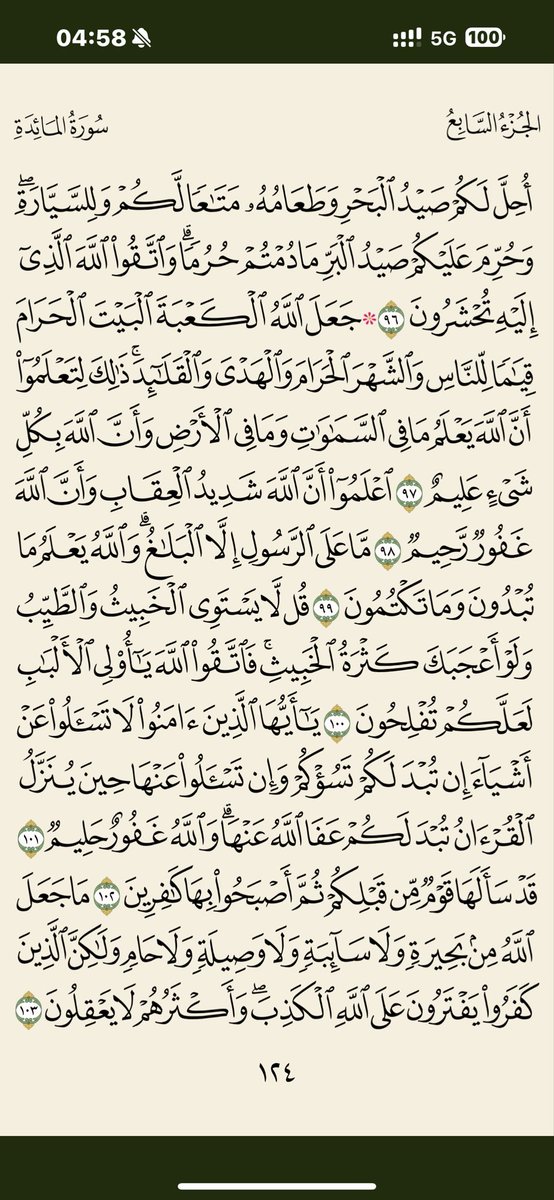 04:58
5G 100
الجُزْءُ السَّابِعُ
سُورَةُ المَائِدَةِ
أُحِلَّ لَكُمۡ صَيۡدُ ٱلۡبَحۡرِ وَطَعَامُهُۥ مَتَٰعٗا لَّكُمۡ وَلِلسَّيَّارَةِۖ
وَحُرِّمَ عَلَيۡكُمۡ صَيۡدُ ٱلۡبَرِّ مَا دُمۡتُمۡ حُرُمٗاۗ وَٱتَّقُواْ ٱللَّهَ ٱلَّذِيٓ
إِلَيۡهِ تُحۡشَرُونَ ٩٦ * جَعَلَ ٱللَّهُ ٱلۡكَعۡبَةَ ٱلۡبَيۡتَ ٱلۡحَرَامَ
قِيَٰمٗا لِّلنَّاسِ وَٱلشَّهۡرَ ٱلۡحَرَامَ وَٱلۡهَدۡيَ وَٱلۡقَلَٰٓئِدَۚ ذَٰلِكَ لِتَعۡلَمُوٓاْ
أَنَّ ٱللَّهَ يَعۡلَمُ مَا فِي ٱلسَّمَٰوَٰتِ وَمَا فِي ٱلۡأَرۡضِ وَأَنَّ ٱللَّهَ بِكُلِّ
شَيۡءٍ عَلِيمٌ ٩٧ ٱعۡلَمُوٓاْ أَنَّ ٱللَّهَ شَدِيدُ ٱلۡعِقَابِ وَأَنَّ ٱللَّهَ
غَفُورٞ رَّحِيمٞ ٩٨ مَّا عَلَى ٱلرَّسُولِ إِلَّا ٱلۡبَلَٰغُۗ وَٱللَّهُ يَعۡلَمُ مَا
تُبۡدُونَ وَمَا تَكۡتُمُونَ ٩٩ قُل لَّا يَسۡتَوِي ٱلۡخَبِيثُ وَٱلطَّيِّبُ
وَلَوۡ أَعۡجَبَكَ كَثۡرَةُ ٱلۡخَبِيثِۚ فَٱتَّقُواْ ٱللَّهَ يَٰٓأُوْلِي ٱلۡأَلۡبَٰبِ
لَعَلَّكُمۡ تُفۡلِحُونَ ١٠٠ يَٰٓأَيُّهَا ٱلَّذِينَ ءَامَنُواْ لَا تَسۡـَٔلُواْ عَنۡ
أَشۡيَآءَ إِن تُبۡدَ لَكُمۡ تَسُؤۡكُمۡ وَإِن تَسۡـَٔلُواْ عَنۡهَا حِينَ يُنَزَّلُ
ٱلۡقُرۡءَانُ تُبۡدَ لَكُمۡ عَفَا ٱللَّهُ عَنۡهَاۗ وَٱللَّهُ غَفُورٌ حَلِيمٞ ١٠١
قَدۡ سَأَلَهَا قَوۡمٞ مِّن قَبۡلِكُمۡ ثُمَّ أَصۡبَحُواْ بِهَا كَٰفِرِينَ ١٠٢ مَا جَعَلَ
ٱللَّهُ مِنۢ بَحِيرَةٖ وَلَا سَآئِبَةٖ وَلَا وَصِيلَةٖ وَلَا حَامٖ وَلَٰكِنَّ ٱلَّذِينَ
كَفَرُواْ يَفۡتَرُونَ عَلَى ٱللَّهِ ٱلۡكَذِبَۖ وَأَكۡثَرُهُمۡ لَا يَعۡقِلُونَ ١٠٣
١٢٤